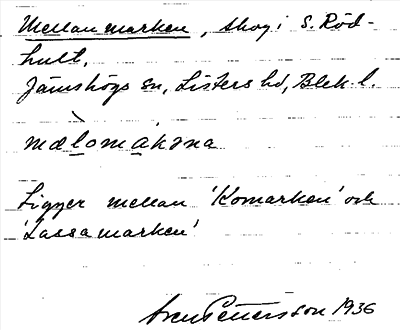 Mellanmarken, skog i S. Röd-
hult,
Jämshögs sn, Listers hd, Blek. l.
mælomàkəna
Ligger mellan 'Komarken' och
'Lassamarken'
Sven Pettersson 1936